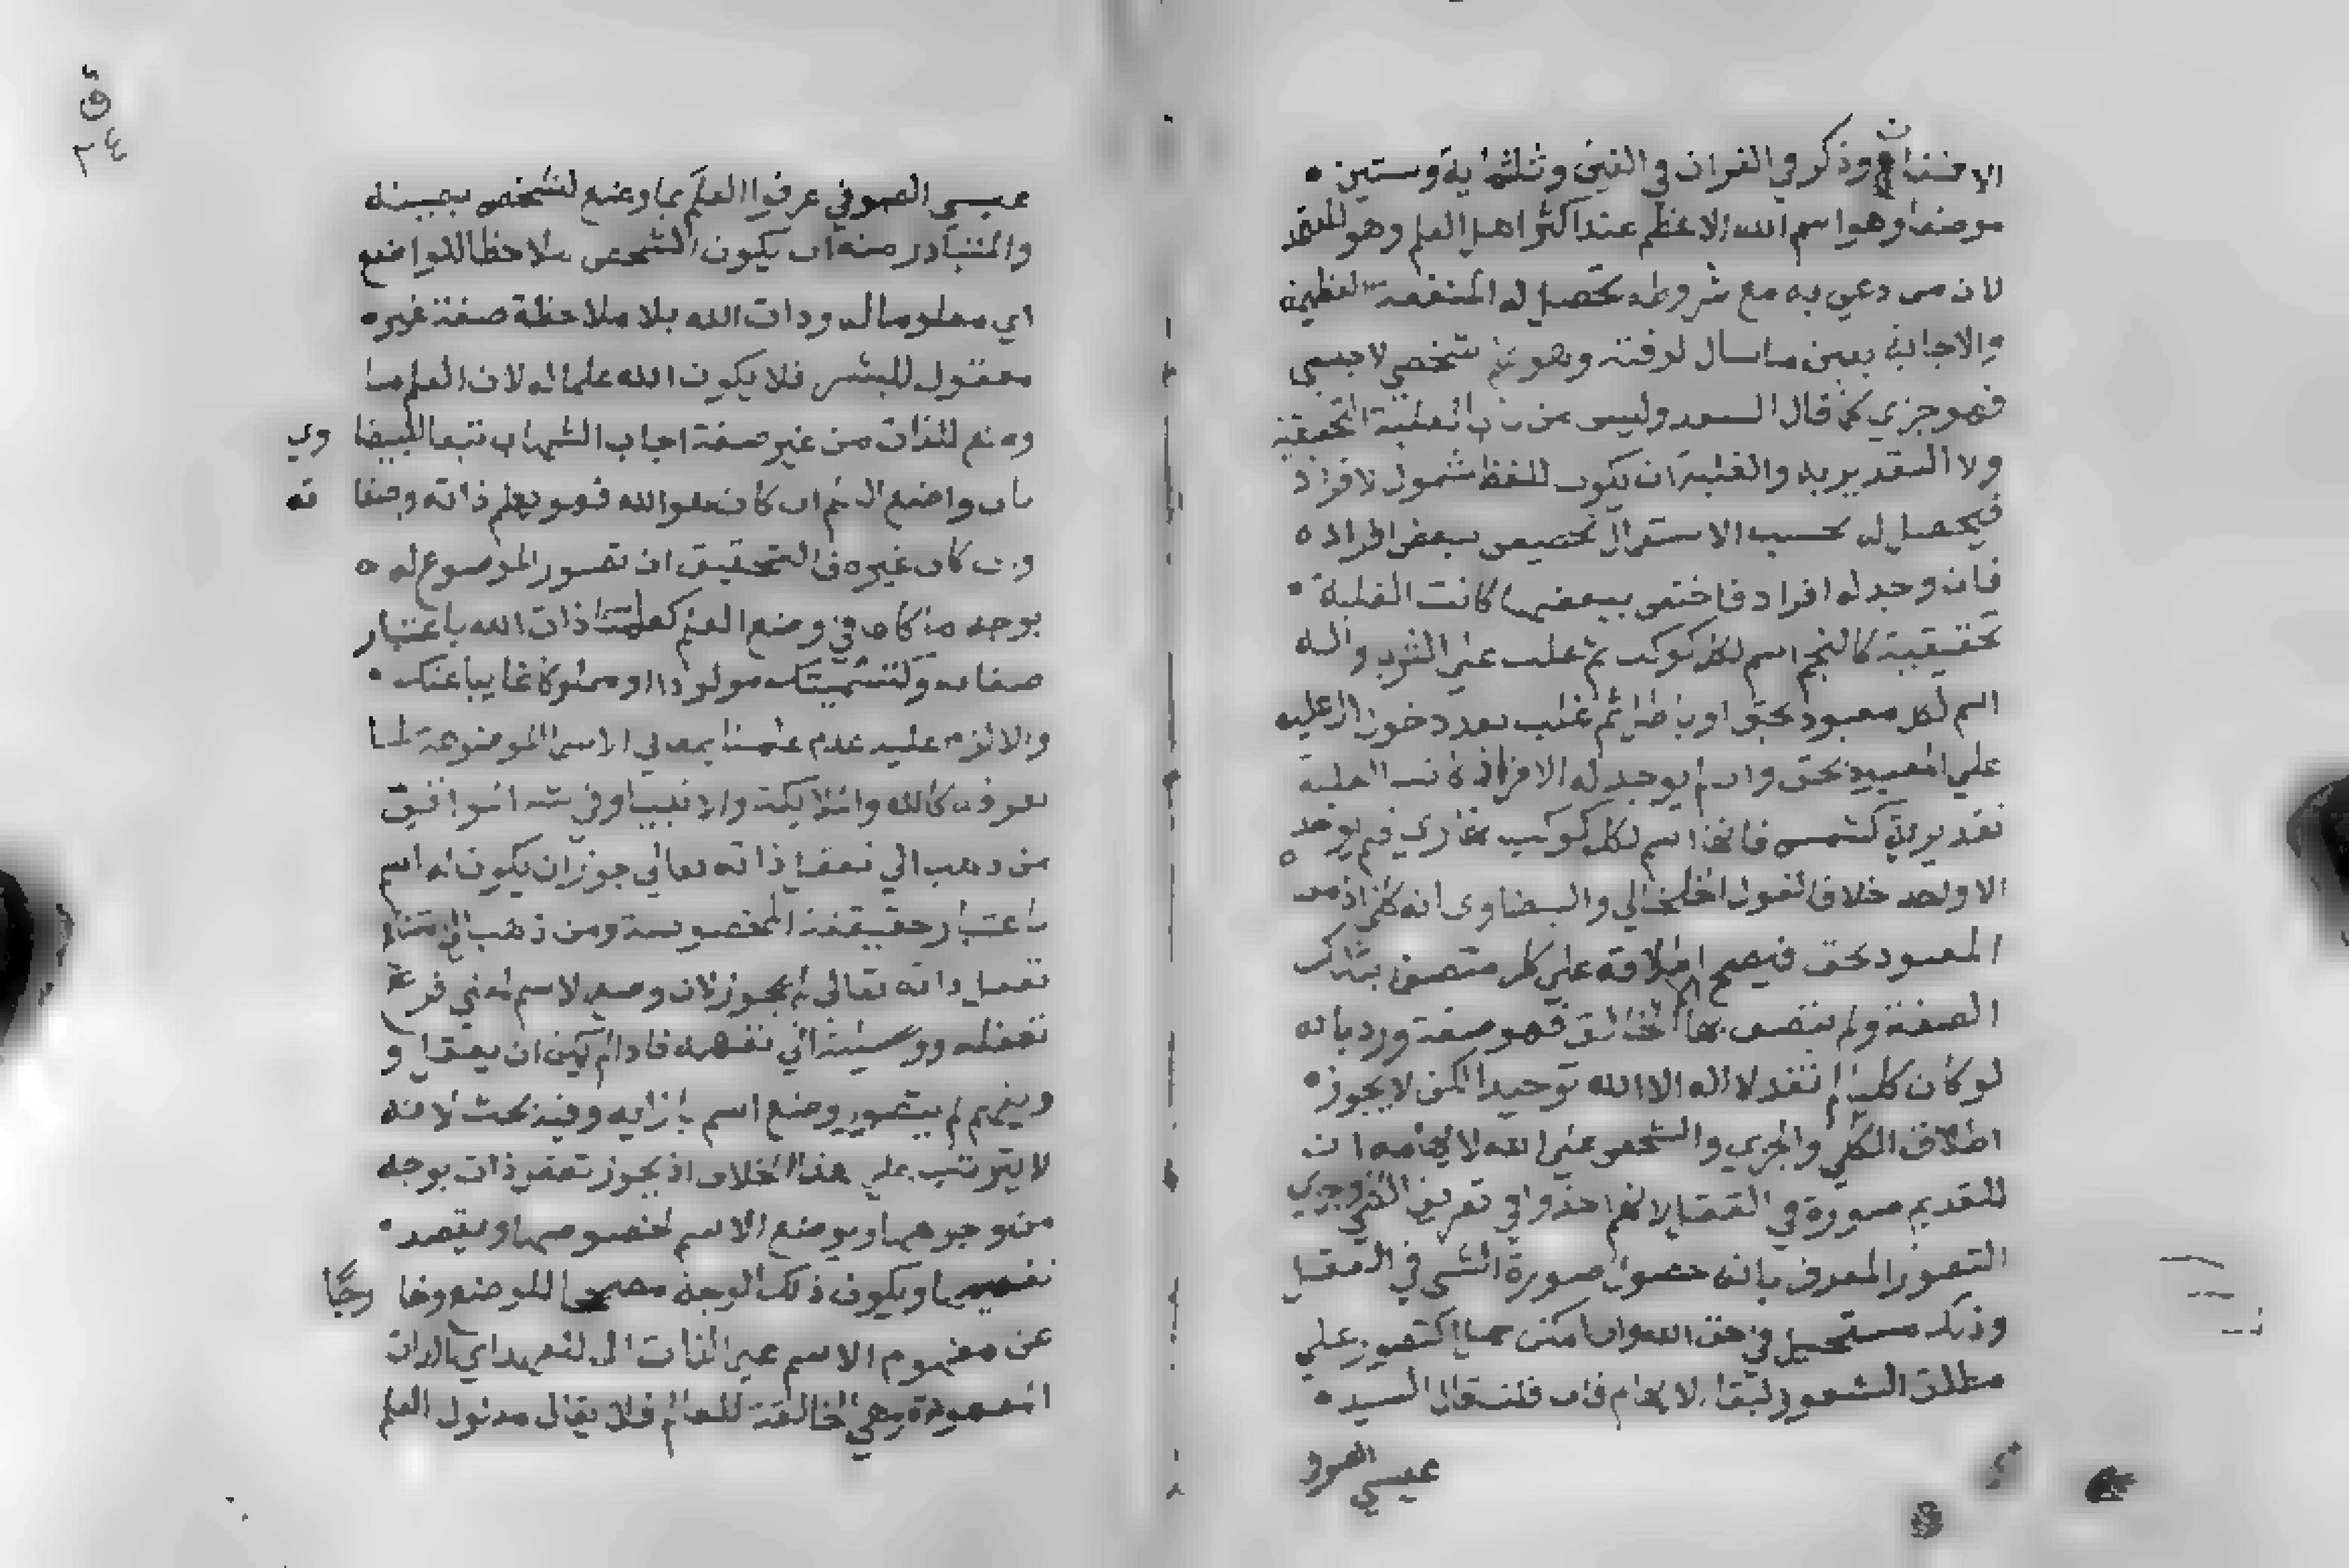 وذكر في القران في الفين وثلثماية وستين
موضعا وهو اسم الله الاعظم عند اكثر اهل العلم وهو
لان من دعي به مع شروطه تحصل له المنفعة العظيمة
والاجابة بعين ما سال لوقته وهو علم شخصي لا جنسي
فهو جزي كما قال السعد وليس من باب الغلبة التحقيقية
ولا التقديريه والغلبة ان يكون للفظ شمول لافراد
فيحصل له بحسب الاستعمال تخصيص ببعض افراده
فان وجد له افراد فاختص ببعضها كانت الغلبة
تحقيقية كالنجم اسم لكل كوكب ثم غلب علي الثريا واله
اسم لكل معبود بحق او باطل ثم غلب بعد دخول ال عليه
علي المعبود بحق وان لم يوجد له الافراد كانت الغلبة
تقديرية كشمس فانها اسم لكل كوكب نهاري فلم يوجد
الا واحد خلافا لقول الخلخالي والبيضاوي انه
المعبود بحق فيصح اطلاقه علي كل متصف بتلك
الصفة ولم يتصف بها الا الخالق فهو صفة ورد بانه
لو كان كليا لم تفد لا اله الا الله توحيدا لكن لا يجوز
اطلاق الكلي والجزي والشخص علي الله لايهامه ان
للقديم صورة في العقل لانهم اخذوا في تعريف الكلي وجزي
التصور المعرف بانه حصول صورة الشي في العقل
وذلك مستحيل في حق الله وان امكن حمل التصور علي
مطلق الشعور لبقاء الايهام فان قلت قال السيد
عيسي الصوف
ق
٢٤
عيسي الصوفي عرفوا العلم بما وضع لشخص بعينه
والمتبادر منه ان يكون الشخص ملاحظا للواضع
اي معلوما له وذات الله بلا ملاحظة صفة غير
معقول للبشر فلا يكون الله علما له لان العلم ما
وضع للذات من غير صفة اجاب الشهاب تبعا للبيضا وي
بان واضع العلم ان كان هو الله فهو يعلم ذاته وصفا ته
وان كان غيره فالتحقيق ان تصور الموضوع له
بوجه ما كاف في وضع العلم كعلمنا ذات الله باعتبار
صفاته وكتسميتك مولودا او مملوكا غايبا عنك
والا لزم عليه عدم علمنا بمعاني الاسما الموضوعة لما
نعرفه كالله والملايكة والانبيا وفي شرح المواقف
من ذهب الي تعقل ذاته تعالي جوز ان يكون له اسم
باعتبار حقيقته المخصوصة ومن ذهب الي امتناع
تعقل ذاته تعالي لم يجوز لان وضع الاسم لمعني فرع
تعقله ووسيلة الي تفهيمه فاذا لم يمكن ان يعقل و
ويفهم لم يتصور وضع اسم بازايه وفيه بحث لانه
لا يترتب علي هذا الخلاف اذ يجوز تعقل ذات بوجه
من وجوهها ويوضع الاسم لخصوصها ويقصد
تفهيمها ويكون ذلك الوجه مصححا للوضع وخا رجًا
عن مفهوم الاسم علي الذات ال للعهد اي الذات
المعهودة وهي الخالقة للعالم فلا يقال مدلول العلم